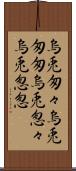 烏兎匆々烏兎
匆匆烏兎怱々
烏兎怱怱